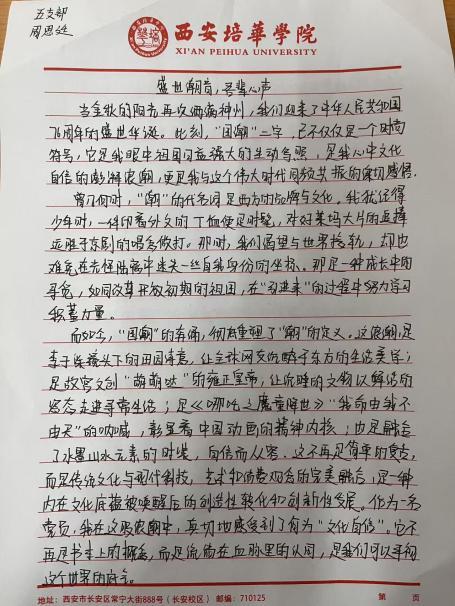 五支部
周恩廷
西安培華學院
XI'AN PEIHUA UNIVERSITY
盛世潮音，吾辈心声
当金秋的阳光再次洒满神州，我们迎来了中华人民共和国
76周年的盛世华诞。此刻，"国潮"二字，已不仅仅是一个时尚
符号，它是我眼中祖国日益强大的生动写照，是我心中文化
自信的澎湃浪潮，更是我与这个伟大时代同频共振的深切感悟。
曾几何时，"潮"的代名词是西方的品牌与文化。我犹记得
少年时，一件印着外文的T恤便是时髦，对好莱坞大片的追捧
远胜于京剧的唱念做打。那时，我们渴望与世界接轨，却也
难免在光怪陆离中迷失一丝自我身份的坐标。那是一种成长中的
寻觅，如同改革开放初期的祖国，在"引进来"的过程中努力学习
积蓄力量。
而如今，"国潮"的奔涌，彻底重塑了"潮"的定义。这浪潮，是
李子柒镜头下的田园诗意，让全球网友沉醉于东方的生活美学；
是故宫文创"萌萌哒"的雍正皇帝，让沉睡的文物以鲜活的
姿态走进寻常生活；是《哪吒之魔童降世》"我命由我不
由天"的呐喊，彰显着中国动画的精神内核；也是融合
了水墨山水元素的时装，自信而从容。这不再是简单的复古，
而是传统文化与现代科技、艺术和消费观念的完美融合，是一种
内在文化底蕴被唤醒后的创造性转化和创新性发展。作为一名
党员，我在这股浪潮中，真切地感受到了何为"文化自信"。它不
再是书本上的概念，而是流淌在血脉里的认同，是我们可以平视
这个世界的底气。
地址：西安市长安区常宁大街888号（长安校区） 邮编：710125
第 页